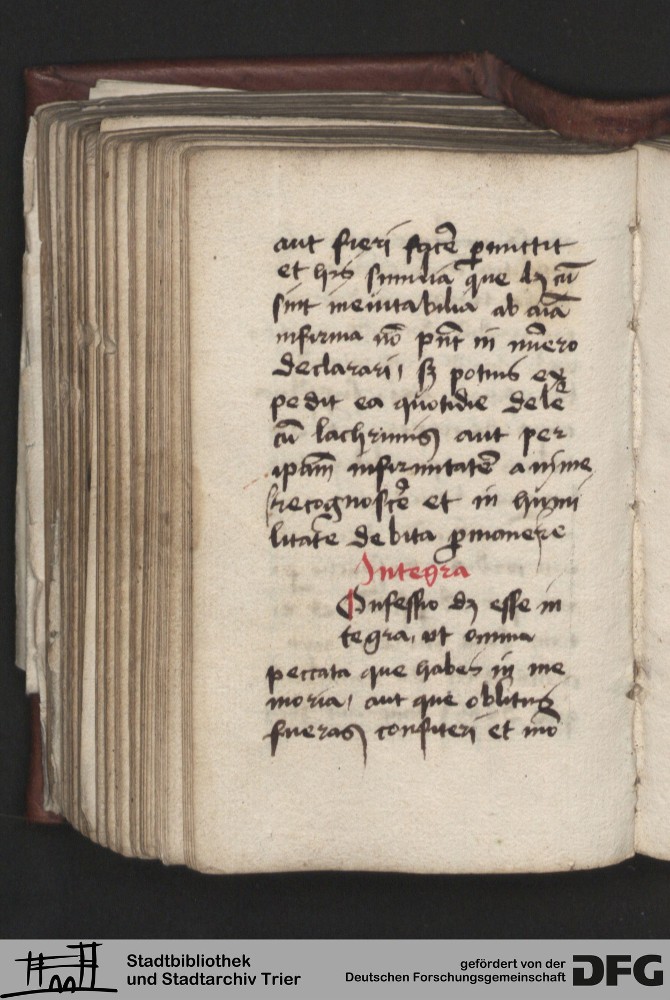 aut fieri facē ꝑmittit
et hijs similia que dꝫ cū
sint ineuitabilia ab aīa
infirma nō pn̄t in nūero
declarari, sꝫ potius ex
pedit ea quotidie delē
cū lachrimis aut per
ipam̄ infirmitatē anime
recognoscē et in humi
litate debita ꝑmanere
Integra
Confessio dꝫ esse in
tegra, vt omnia
peccata que habes in me
moria, aut que oblitus
fueras confiteri et nō
Stadtbibliothek
und Stadtarchiv Trier
gefördert von der
Deutschen Forschungsgemeinschaft
DFG